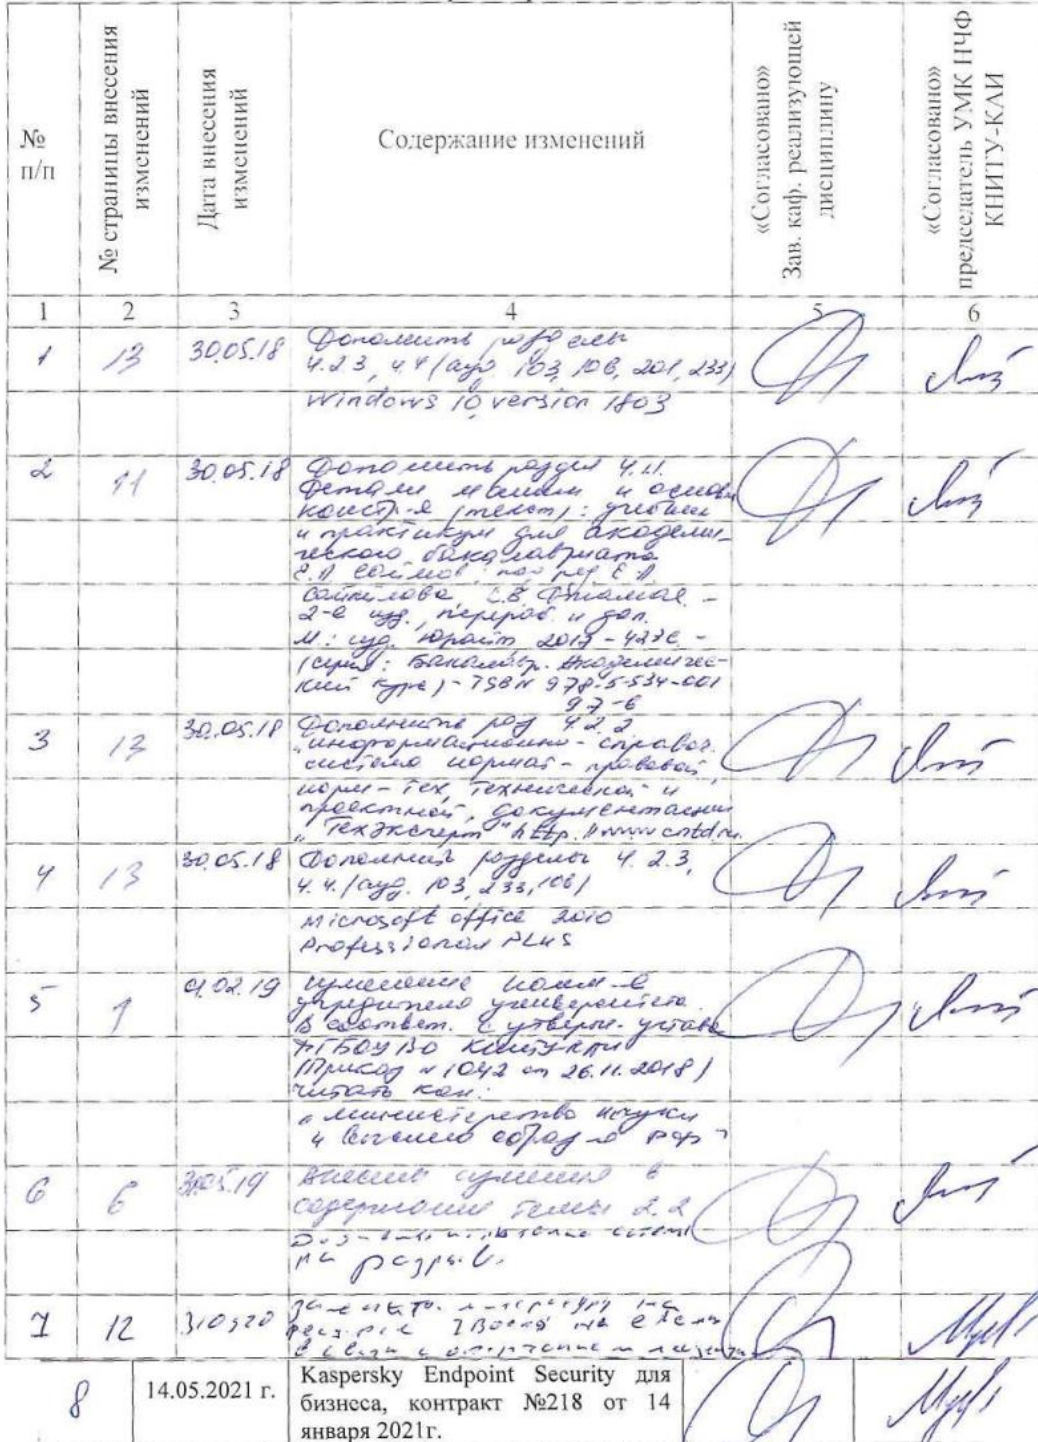 № п/п
№ страницы внесения изменений
Дата внесения изменений
Содержание изменений
«Согласовано»
Зав. каф. реализующей
дисциплину
«Согласовано»
председатель УМК НЧФ
КНИТУ-КАИ
1 2 3 4 5 6
1 13 30.05.18 Дополнить разделы
4.2.3, 4.4 (ауд. 103, 106, 201, 233)
Windows 10, version 1803
2 11 30.05.18 Дополнить раздел 4.1.
Детали машин и основы
констр-я (текст): учебник
и практикум для академи-
ческого бакалавриата
Е.А.
2-е изд., перераб. и доп.
М.: изд. Юрайт 2017 -
(серия: Бакалавр. Академичес-
кий курс) - ISBN 978-5-534-001
97-6
3 13 30.05.18 Дополнить раз 4.2.2
"информационно - справоч.
система нормат - правовой,
норм - тех, технической и
проектной, документации
"ТехЭксперт" http://www.cntd.ru
4 13 30.05.18 Дополнить разделы 4.2.3,
4.4. (ауд. 103, 233, 106)
Microsoft office 2010
Professional PLUS
5 1 01.02.19 Изменение наим-е
учредителя университета
В соответ. с утвержд. устава
ФГБОУ ВО КНИТУ-КАИ
(Приказ № 1042 от 26.11.2018)
читать как:
"министерство науки
и высшего образ-я РФ"
6 6 31.05.19 Внести изменения в
содержание темы 2.2
на разрыв.
7 12 31.05.20 литературу на
8 14.05.2021 г. Kaspersky Endpoint Security для
бизнеса, контракт №218 от 14
января 2021г.